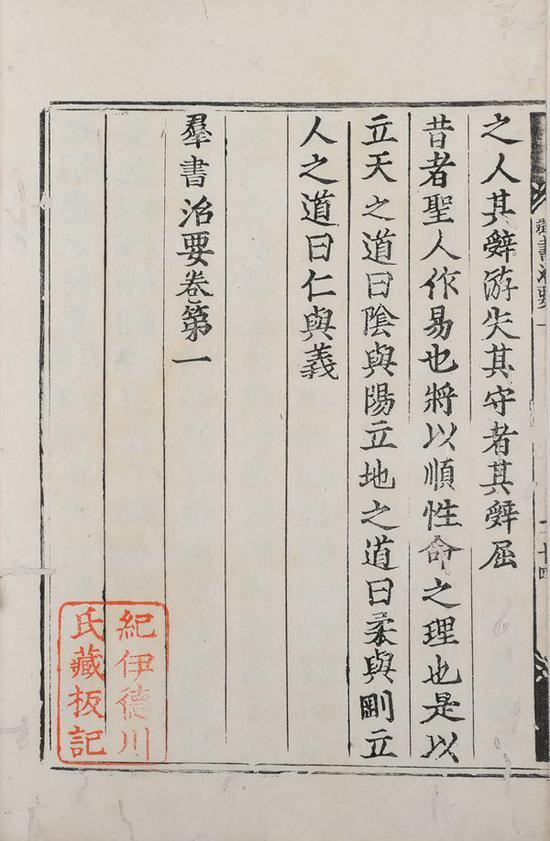 之人其辭游失其守者其辭屈
昔者聖人作易也將以順性命之理也是以
立天之道曰陰與陽立地之道曰柔與剛立
人之道曰仁與義
羣書治要卷第一
紀伊德川
氏藏板記